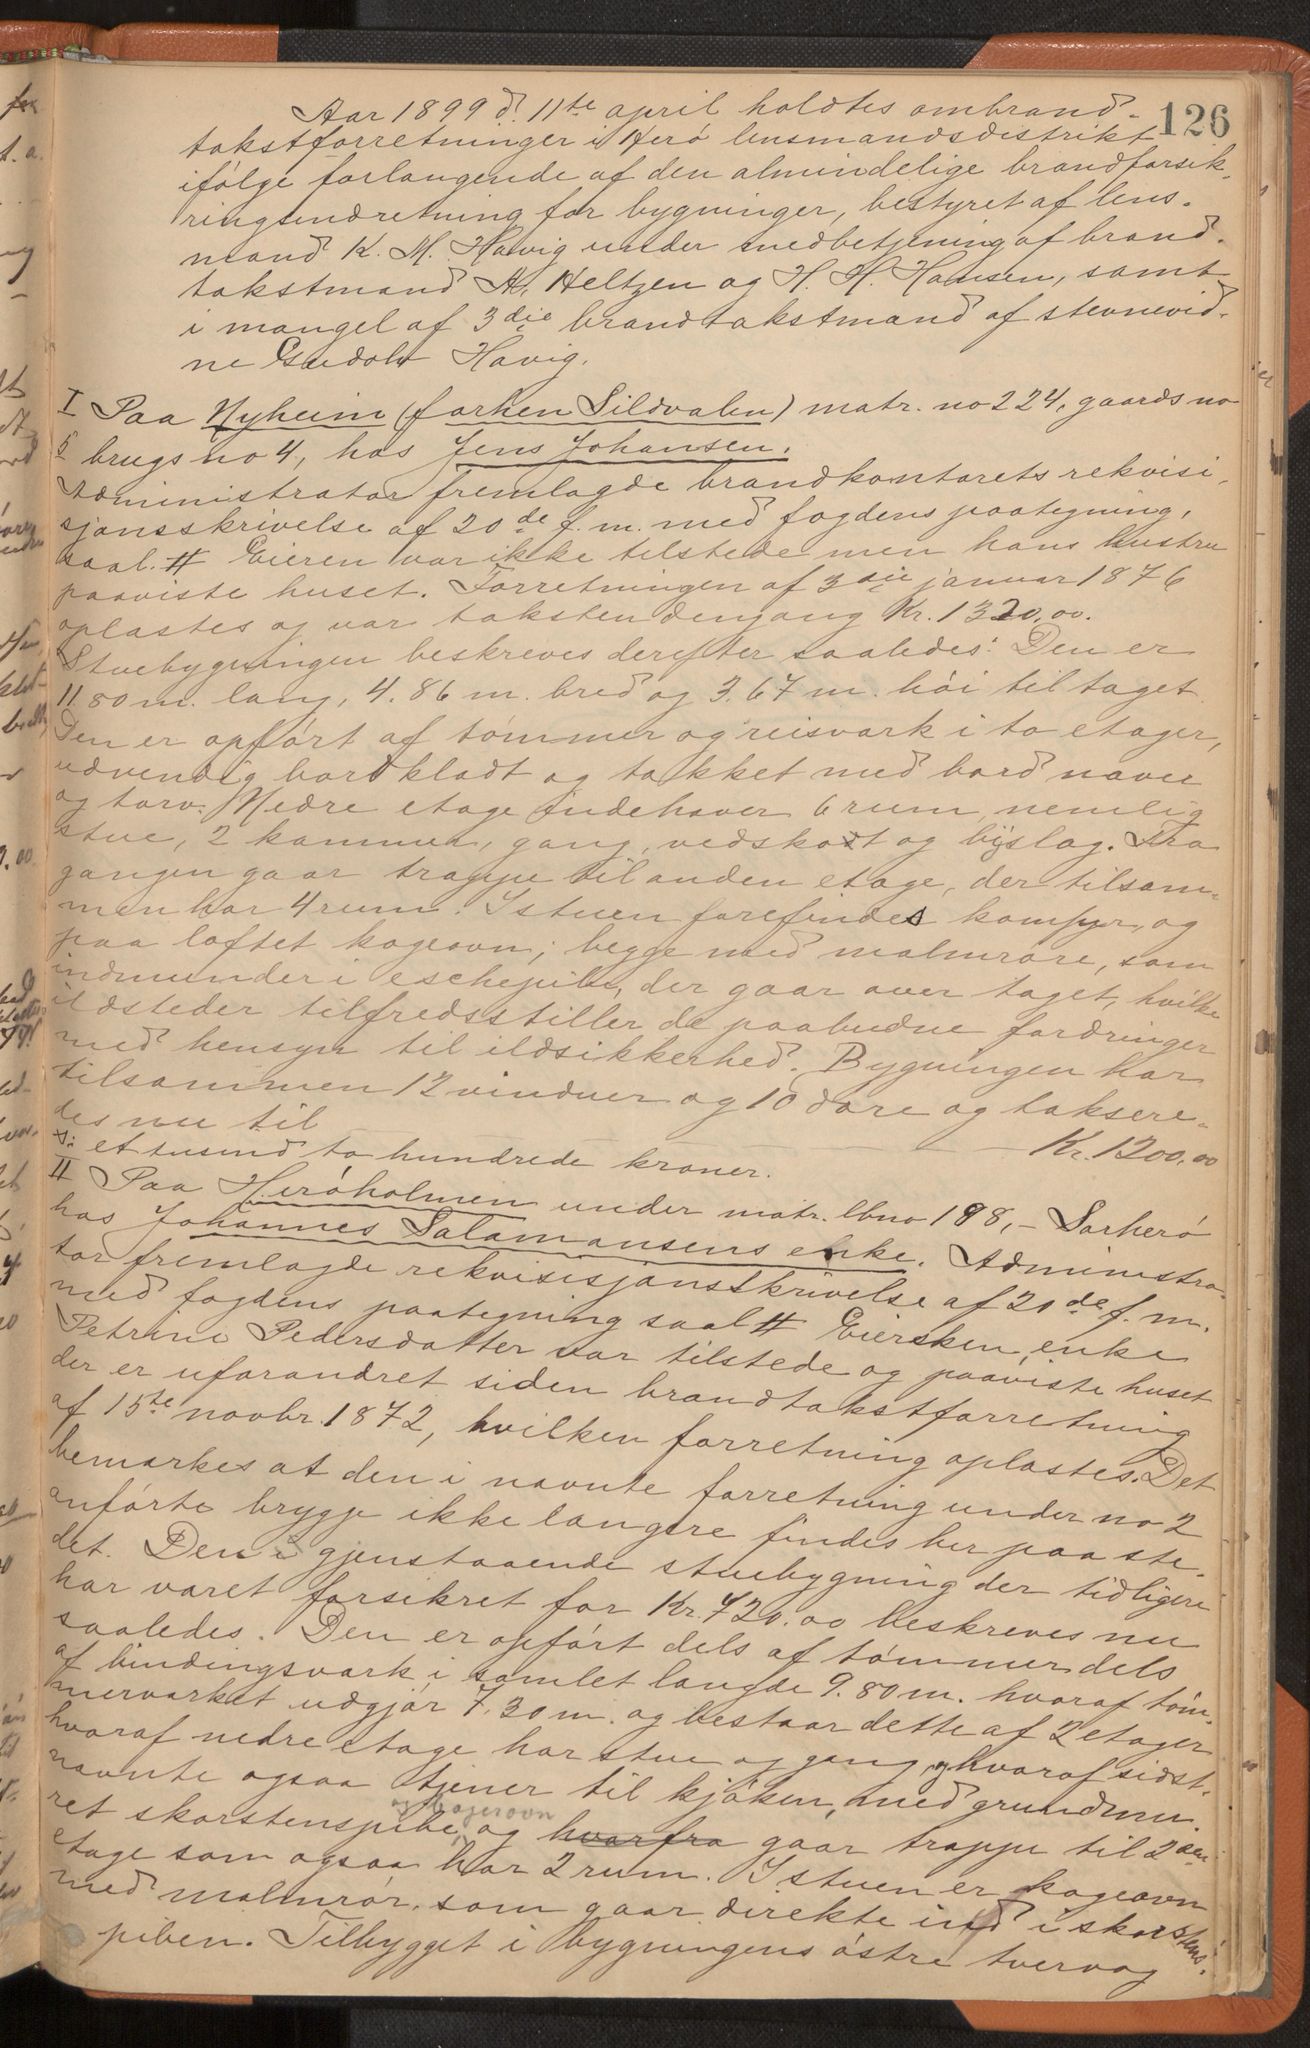 126
Aar 1899 d. 11te april holdtes ombrand-
takstforretninger i Herø lensmandsdistrikt
ifølge forlangende af den almindelige brandforsik-
ringsindretning for bygninger, bestyret af lens-
mand K. M. Havig under medbetjening af brand-
takstmænd A. Heltzen og H. H. Hansen, samt
i mangel af 3die brandtakstmand af stevnevid-
ne Gudolv Havig.
I Paa Nyheim (forhen Sildvalen) matr. no 224, gaards no
5 brugs no 4, hos Jens Johansen.
Administrator fremlagde brandkontorets rekvisi-
sjonsskrivelse af 20de f. m. med fogdens paategning,
saal. # Eieren var ikke tilstede men hans hustru
paaviste huset. Forretningen af 3die januar 1876
oplæstes og var taksten dengang Kr. 1320,00.
Stuebygningen beskreves derefter saaledes: Den er
11.80 m. lang, 4.86 m. bred og 3.67 m. høi til taget
Den er opført af tømmer og reisværk i to etager,
udvendig bordklædt og tækket med bord næver
og torv. Nedre etage indehaver 6 rum nemlig
stue, 2 kammer, gang, vedskott og bislag. Fra
gangen gaar trappe til anden etage, der tilsam-
men har 4 rum. I stuen forefindes komfyr, og
paa loftet kogeovn; begge med malmrøre, som
indmunder i eschepibe, der gaar over taget, hvilke
ildsteder tilfredsstiller de paabudne fordringer
med hensyn til ildsikkerhed. Bygningen har
tilsammen 12 vinduer og 10 døre og taksere-
des nu til — — — Kr. 1200,00
s: et tusind to hundrede kroner.
II Paa Herøholmen under matr. lbno 198, - Sørherø
hos Johannes Salamonsens enke. Administra-
tor fremlagde rekvisisjonsskrivelse af 20de f. m.
med fogdens paategning saal # Eiersken, enke
Petrine Pedersdatter var tilstede og paaviste huset
der er uforandret siden brandtakstforretning
af 15te novbr. 1872, hvilken forretning oplæstes. Det
bemærkes at den i nævnte forretning under no 2
anførte brygge ikke længere findes her paa ste-
det. Den i gjenstaaende stuebygning der tidligere
har været forsikret for Kr. 720.00 beskreves nu
saaledes. Den er opført dels af tømmer dels
af bindingsværk i samlet længde 9.80 m. hvoraf tøm-
merværket udgjør 7.30 m. og bestaar dette af 2 etager
hvoraf nedre etage har stue og gang, og hvoraf sidst-
nævnte ogsaa tjener til kjøken, med grundmu-
og bagerovn
ret skorstenspibe, og hvorfra gaar trappe til 2den
etage som ogsaa har 2 rum. I stuen er kogeovn
med malmrør, som gaar direkte ind i skorstens-
piben. Tilbygget i bygningens østre tvervæg